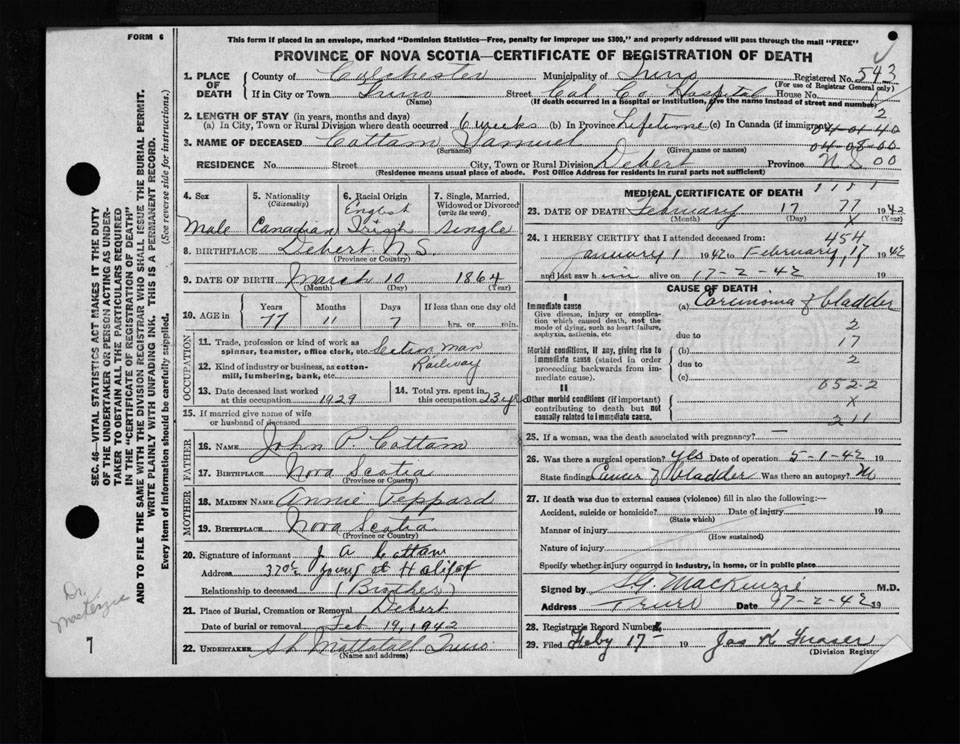 FORM 6
This form if placed in an envelope, marked "Dominion Statistics—Free, penalty for improper use $300," and properly addressed will pass through the mail "FREE"
PROVINCE OF NOVA SCOTIA—CERTIFICATE OF REGISTRATION OF DEATH
1. PLACE OF DEATH
County of Colchester Municipality of Truro Registered No. 543
(For use of Registrar General only)
If in City or Town Truro Street Col. Co Hospital House No.
(Name) (If death occurred in a hospital or institution, give the name instead of street and number)
2. LENGTH OF STAY (in years, months and days)
(a) In City, Town or Rural Division where death occurred 6 weeks (b) In Province Lifetime (c) In Canada (if immigrant)
2
04-08-00
3. NAME OF DECEASED Cottam Samuel
(Surname) (Given name or names)
RESIDENCE No. Street City, Town or Rural Division Debert Province N S 00
(Residence means usual place of abode. Post Office Address for residents in rural parts not sufficient)
4. Sex
Male
5. Nationality
(Citizenship)
Canadian
6. Racial Origin
English
Irish
7. Single, Married, Widowed or Divorced
(write the word)
Single
8. BIRTHPLACE Debert N.S.
(Province or Country)
9. DATE OF BIRTH March 10 1864
(Month) (Day) (Year)
10. AGE in
Years Months Days If less than one day old
77 11 7 hrs. or min.
OCCUPATION
11. Trade, profession or kind of work as spinner, teamster, office clerk, etc. Section man
12. Kind of industry or business, as cotton-mill, lumbering, bank, etc. Railway
13. Date deceased last worked at this occupation 1929
14. Total yrs. spent in this occupation 23 yrs
15. If married give name of wife or husband of deceased
FATHER
16. NAME John P. Cottam
17. BIRTHPLACE Nova Scotia
(Province or Country)
MOTHER
18. MAIDEN NAME Annie Peppard
19. BIRTHPLACE Nova Scotia
(Province or Country)
20. Signature of informant J A Cottam
Address 370½ Young st Halifax
Relationship to deceased (Brother)
21. Place of Burial, Cremation or Removal Debert
Date of burial or removal Feb 19, 1942
22. UNDERTAKER Mattatall Truro
(Name and address)
MEDICAL CERTIFICATE OF DEATH
23. DATE OF DEATH February 17 77 1942
(Month) (Day) X (Year)
24. I HEREBY CERTIFY that I attended deceased from:
454
January 1 1942 to February 17 1942
and last saw h im alive on 17-2-42 19
CAUSE OF DEATH
I
Immediate cause
Give disease, injury or complication which caused death, not the mode of dying, such as heart failure, asphyxia, asthenia, etc
(a) Carcinoma of bladder
2
due to
17
Morbid conditions, if any, giving rise to immediate cause (stated in order proceeding backwards from immediate cause).
(b)
due to
2
(c)
052-2
II
Other morbid conditions (if important) contributing to death but not causally related to immediate cause.
X
211
25. If a woman, was the death associated with pregnancy? —
26. Was there a surgical operation? Yes Date of operation 5-1-42 19
State finding Cancer of bladder Was there an autopsy?
27. If death was due to external causes (violence) fill in also the following:—
Accident, suicide or homicide? Date of injury 19
(State which)
Manner of injury
(How sustained)
Nature of injury
Specify whether injury occurred in industry, in home, or in public place
Signed by MacKenzie M.D.
Address Truro Date 17-2-42 19
28. Registrar's Record Number
29. Filed Feby 17 19 Jas K Fraser
(Division Registrar)
SEC. 46—VITAL STATISTICS ACT MAKES IT THE DUTY
OF THE UNDERTAKER OR PERSON ACTING AS UNDER-
TAKER TO OBTAIN ALL THE PARTICULARS REQUIRED
IN THE "CERTIFICATE OF REGISTRATION OF DEATH"
AND TO FILE THE SAME WITH THE DIVISION REGISTRAR WHO SHALL ISSUE THE BURIAL PERMIT.
WRITE PLAINLY WITH UNFADING INK. THIS IS A PERMANENT RECORD.
Every item of information should be carefully supplied. (See reverse side for instructions.)
Dr. Mackenzie
7